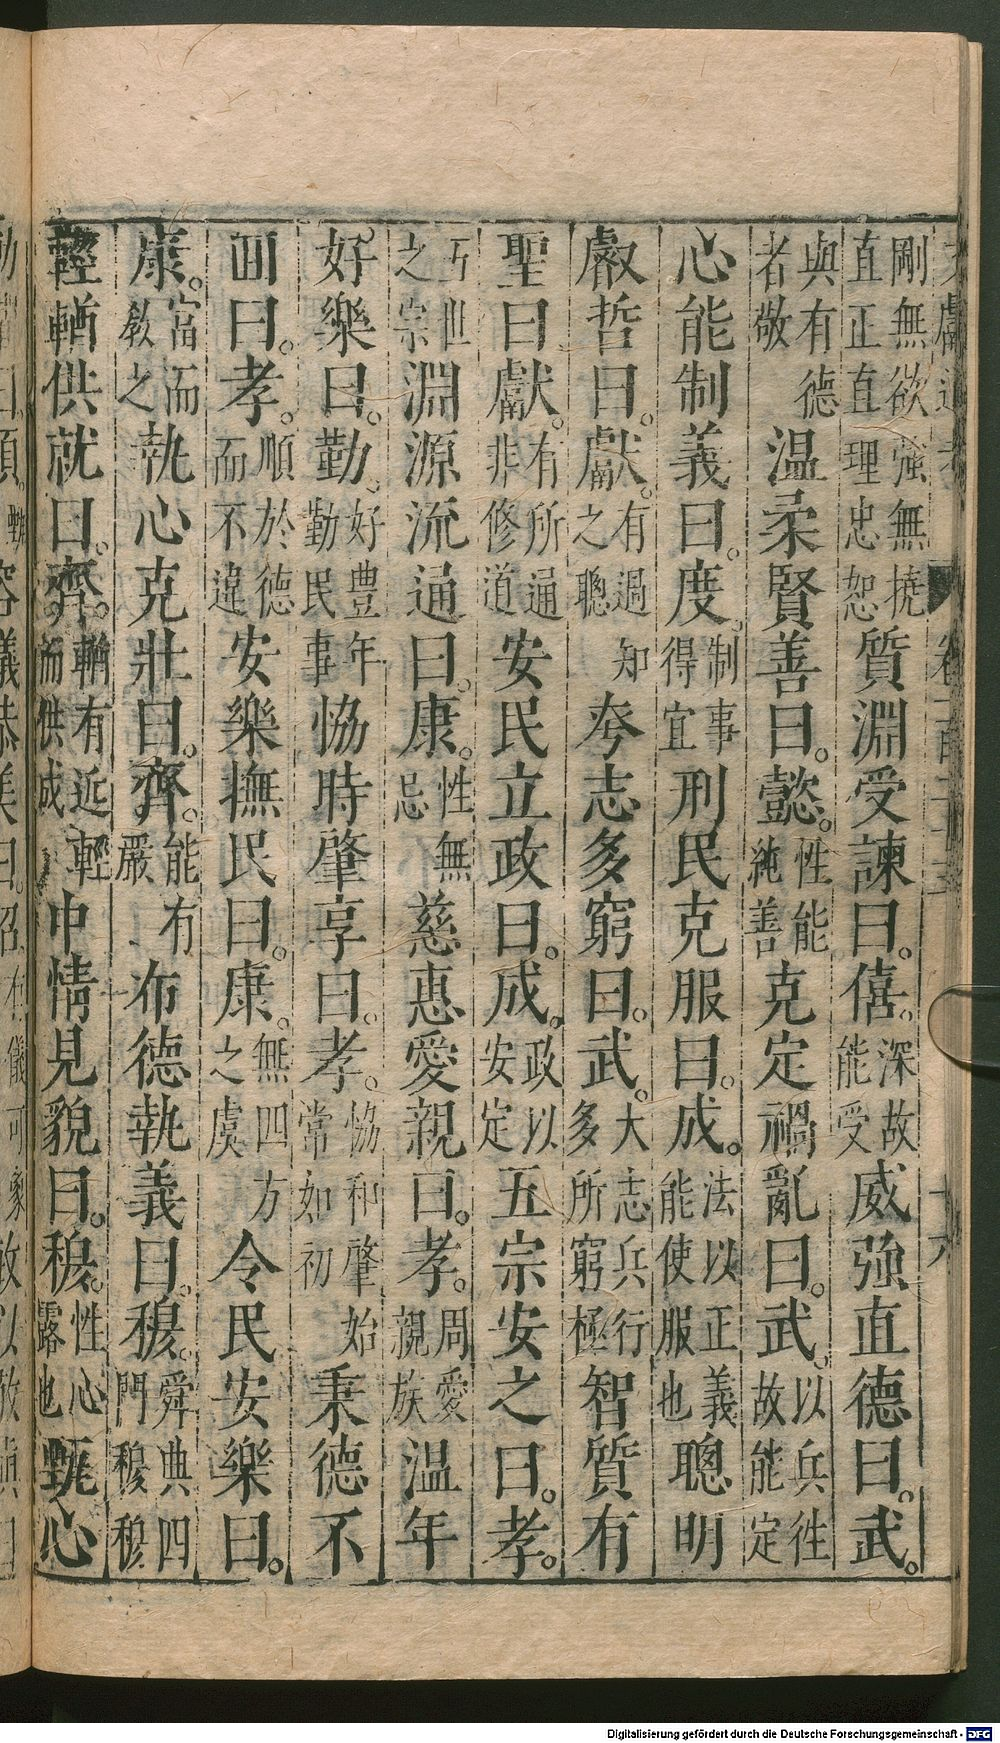 剛無欲強無撓直正直理忠恕質淵受諫曰。僖。深故能受威強直德曰。武。
與有德者敬溫柔賢善曰。懿。性能純善克定禍亂曰。武。以兵往故能定
心能制義曰。度。制事得宜刑民克服曰。成。法以正義能使服也聰明
叡哲曰。獻。有過知之聰夸志多窮曰。武。大志兵行多所窮極智質有
聖曰。獻。有所通非修道安民立政曰。成。政以安定五宗安之曰。孝。
五世之宗淵源流通曰。康。性無忌慈惠愛親曰。孝。周愛親族溫年
好樂曰。勤。好豊年勤民事恊時肇享曰。孝。恊和肇始常如初秉德不
回曰。孝。順於德而不違安樂撫民曰。康。無四方之虞令民安樂曰。
康。富而敎之執心克壯曰。齊。能有嚴布德執義曰。穆。舜典四門穆穆
輕輶供就曰。齊。輶有近輕而供成中情見貌曰。穆。性心露也甄心
Digitalisierung gefördert durch die Deutsche Forschungsgemeinschaft - DFG